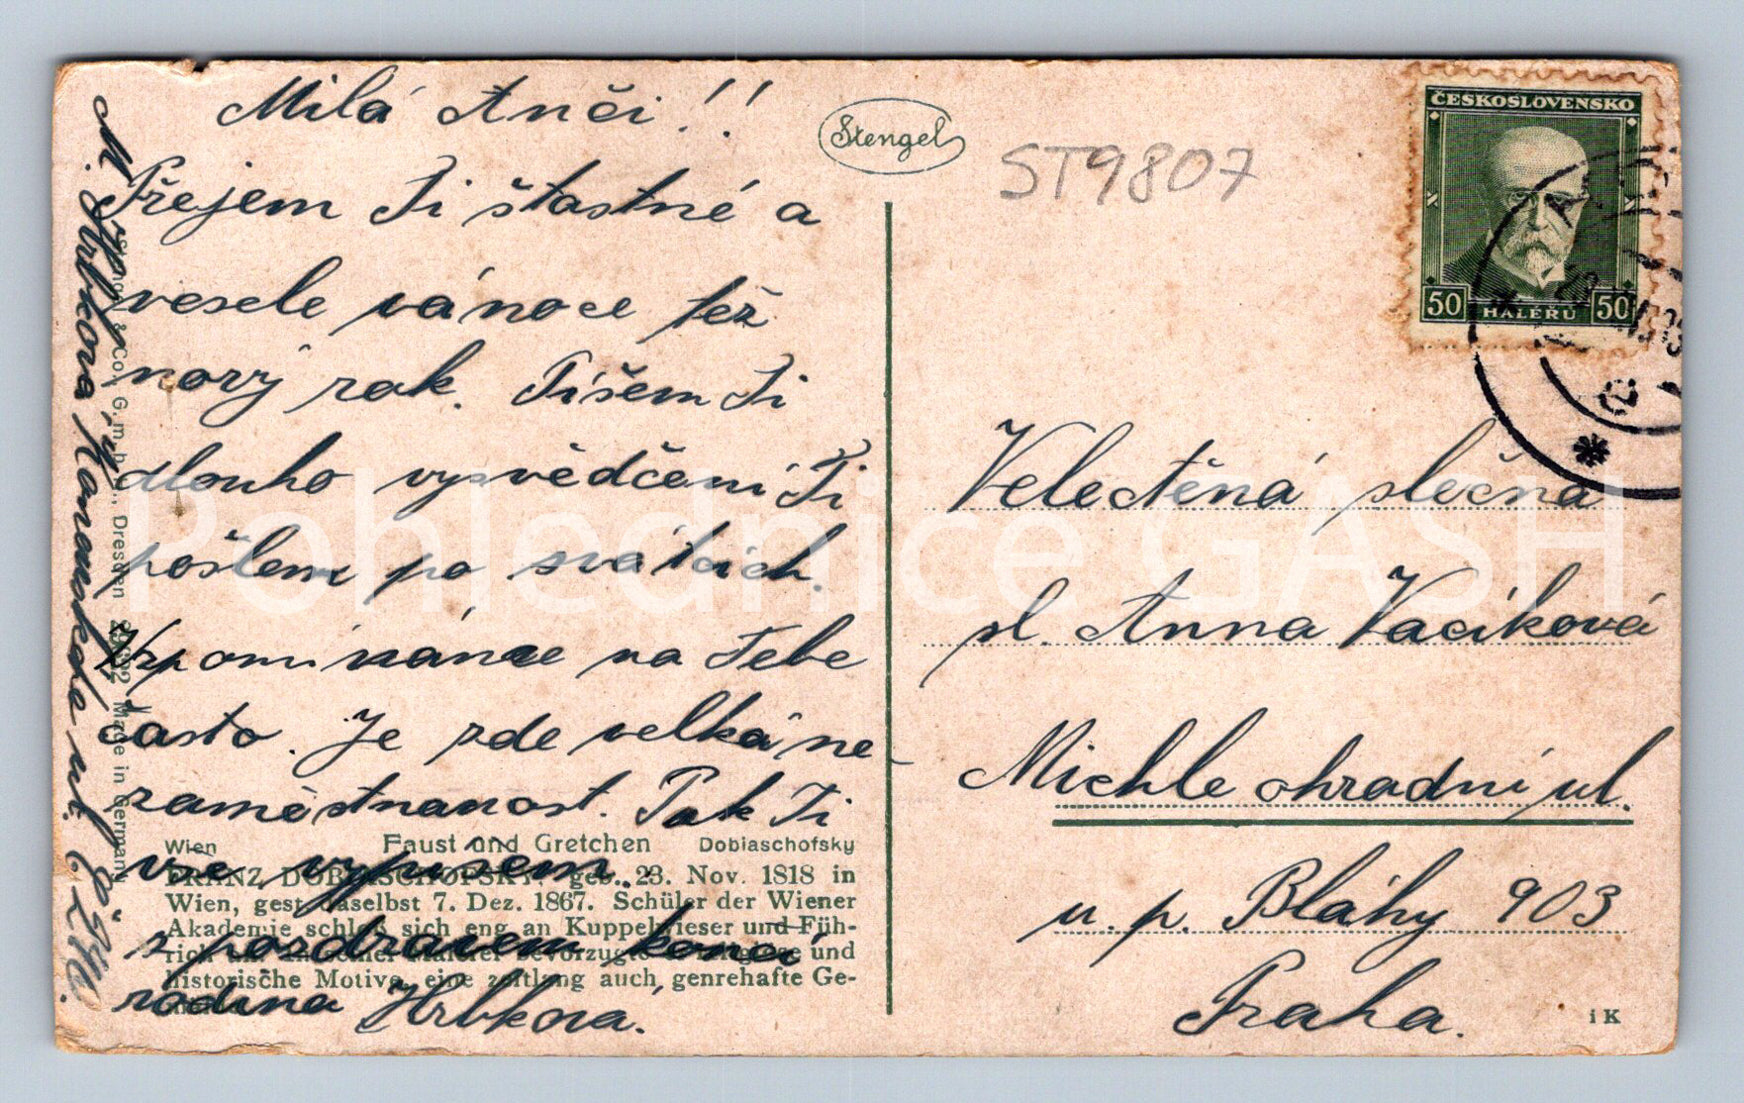 Milá Anči!!
Přejem Ti štastné a
vesele vánoce též
nový rok. Píšem Ti
dlouho vysvědčení Ti
pošlem po svátcich.
Vzpomínáme na Tebe
často. Je zde velká ne-
zaměstnanost. Pak Ti
vse vypisem.
s pozdravem končí
rodina Hrbkova.
M. Hrbkova, Kanonska ul. č. 624.
Stengel & Co., G.m.b.H., Dresden 29892 Made in Germany
Wien Faust und Gretchen Dobiaschofsky
FRANZ DOBIASCHOFSKY, geb. 23. Nov. 1818 in
Wien, gest. daselbst 7. Dez. 1867. Schüler der Wiener
Akademie schloß sich eng an Kuppelwieser und Füh-
rich bevorzugte religiöse und
historische Motive, eine zeitlang auch genrehafte Ge-
Stengel
ST9807
ČESKOSLOVENSKO
50 HALÉŘŮ 50
Velectěná slečna
sl. Anna Vacíková
Michle ohradní ul.
u. p. Bláhy 903
Praha.
i K
Pohlednice GASH